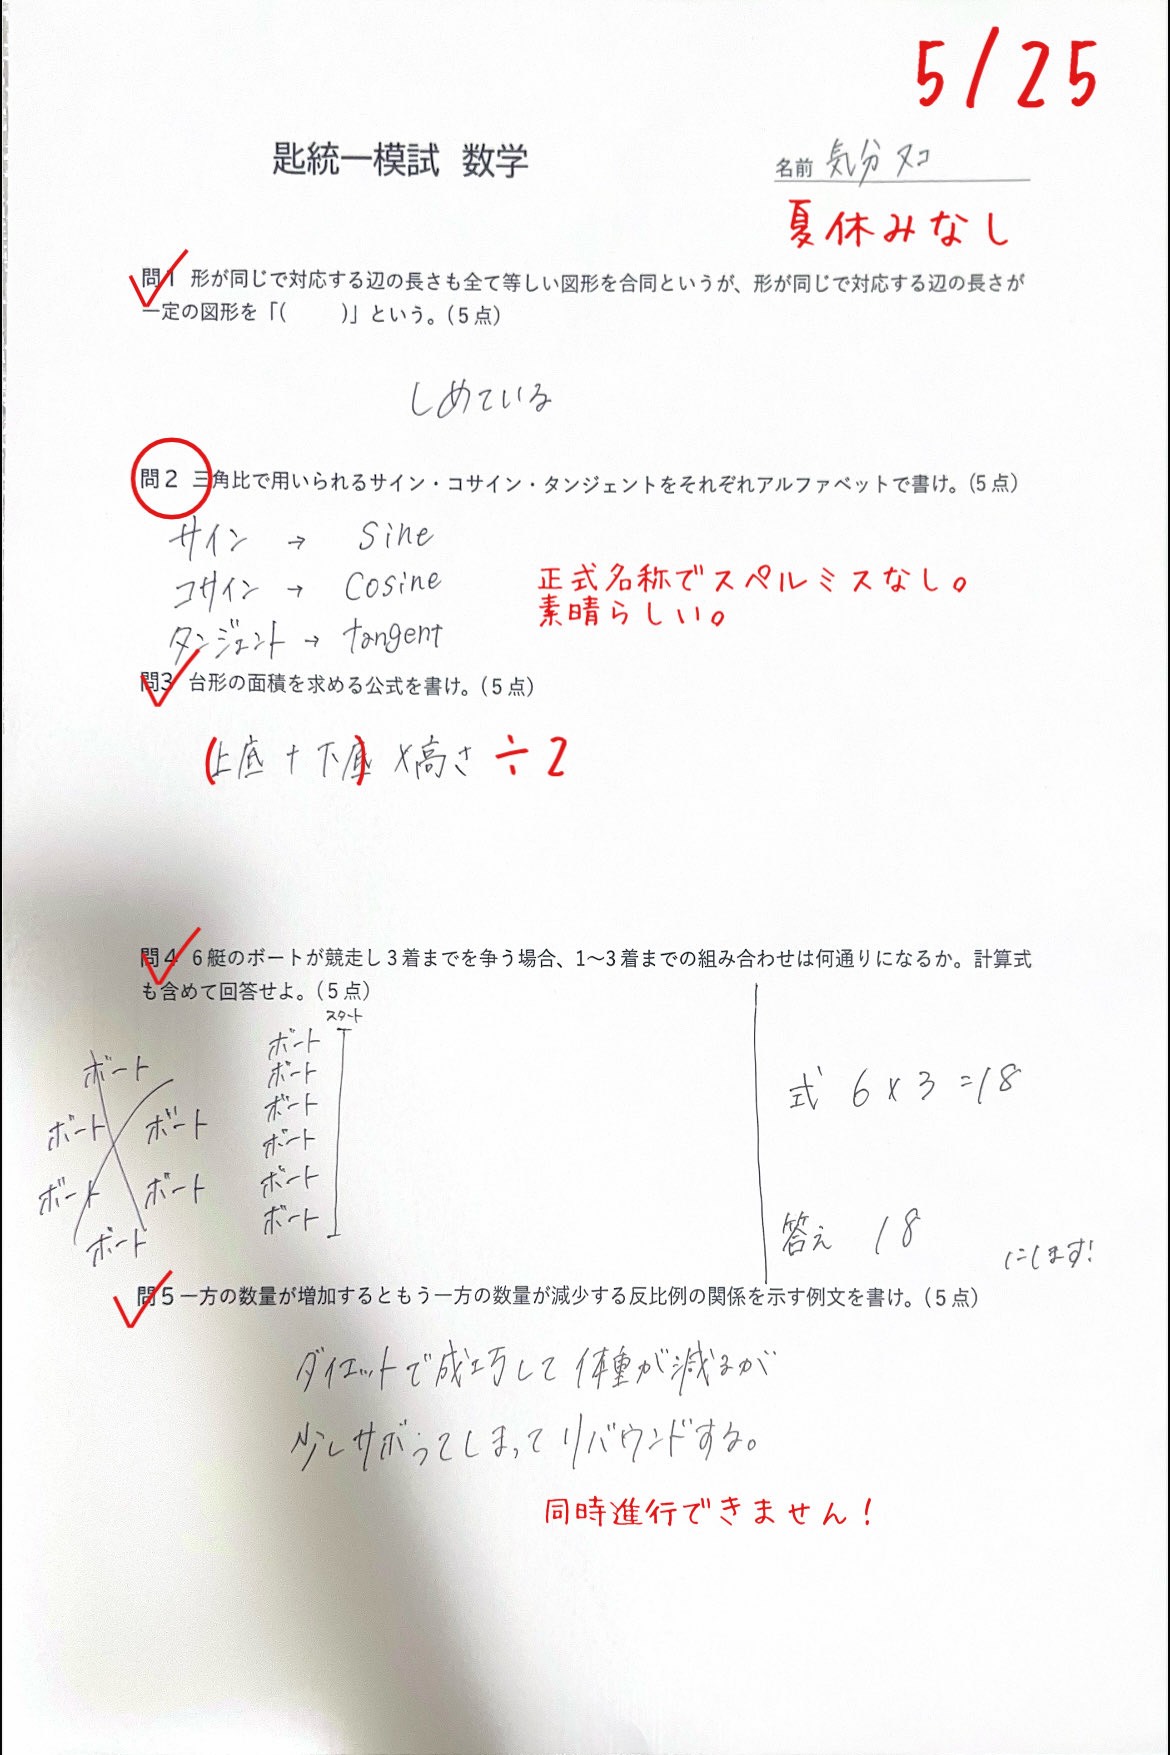 5/25
匙統一模試 数学
名前 気分ヌコ
夏休みなし
問1 形が同じで対応する辺の長さも全て等しい図形を合同というが、形が同じで対応する辺の長さが
一定の図形を「( )」という。(5点)
しめている
問2 三角比で用いられるサイン・コサイン・タンジェントをそれぞれアルファベットで書け。(5点)
サイン → Sine
コサイン → Cosine
タンジェント → tangent
正式名称でスペルミスなし。
素晴らしい。
問3 台形の面積を求める公式を書け。(5点)
(上底 + 下底) ×高さ ÷2
問4 6艇のボートが競走し3着までを争う場合、1〜3着までの組み合わせは何通りになるか。計算式
も含めて回答せよ。(5点)
ボート
ボート ボート
ボート ボート
ボート
スタート
ボート
ボート
ボート
ボート
ボート
ボート
式 6×3=18
答え 18
にします!
問5 一方の数量が増加するともう一方の数量が減少する反比例の関係を示す例文を書け。(5点)
ダイエットで成功して体重が減るが
少しサボってしまってリバウンドする。
同時進行できません!